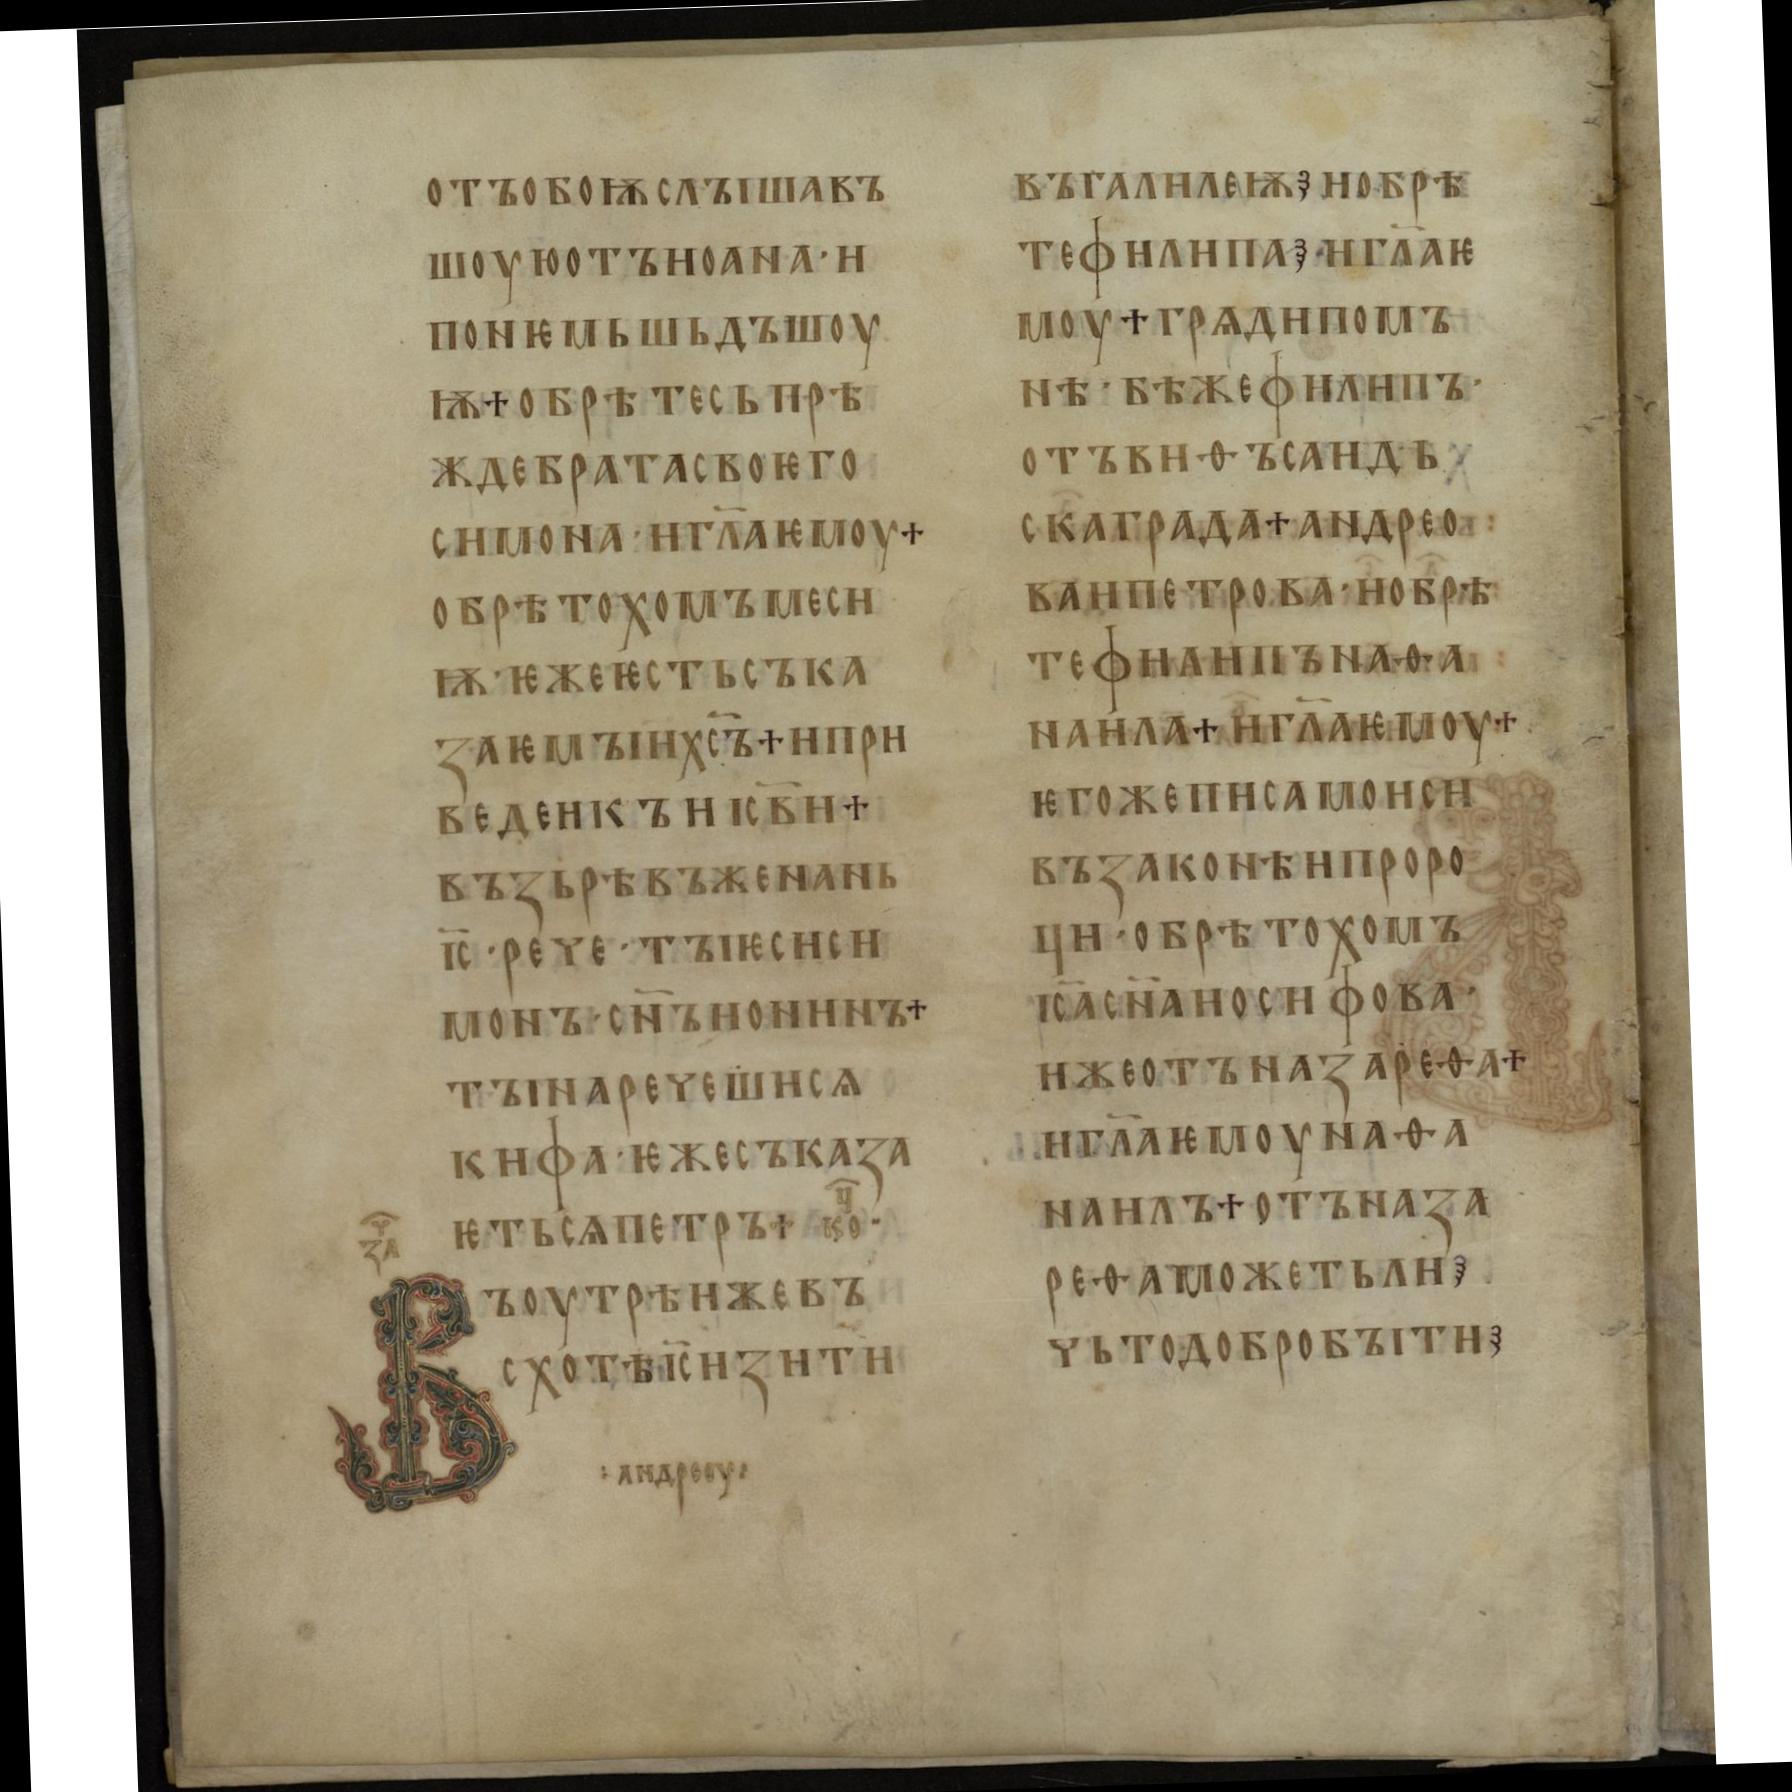 отъобоѭслъішавъ
шоуюотъиоана·и
поѥмьшьдъшоу
ѭ+обрѣтесьпрѣ
ждебратасвоѥго
симона·игл҃аѥмоу+
обрѣтохомъмеси
ѭ·ѥжеѥстьсъка
заѥмъіихс҃ъ+ипри
веденкъиіс҃ви+
възьрѣвъженань
іс҃·рече·тъіѥсиси
монъ·сн҃ъионинъ+
тъінаречешисѧ
кифа·ѥжесъказа
ѥтьсѧпетръ+
за
Въоутрѣижевъ
схотѣіс҃изити
:андреоу:
въгалилеѭꙁиобрѣ
тефилипаꙁ·игл҃аѥ
моу+грѧдипомъ
нѣ·бѣжефилипъ·
отъвиѳъсаидь
скаграда+андрео
ваипетрова·иобрѣ
тефилипънаѳа
наила+игл҃аѥмоу+
ѥгожеписамоиси
възаконѣипроро
ци·обрѣтохомъ
іс҃асн҃аиосифова·
ижеотъназареѳа+
игл҃аѥмоунаѳа
наилъ+отъназа
реѳаможетьлиꙁ
чьтодобробъітиꙁ